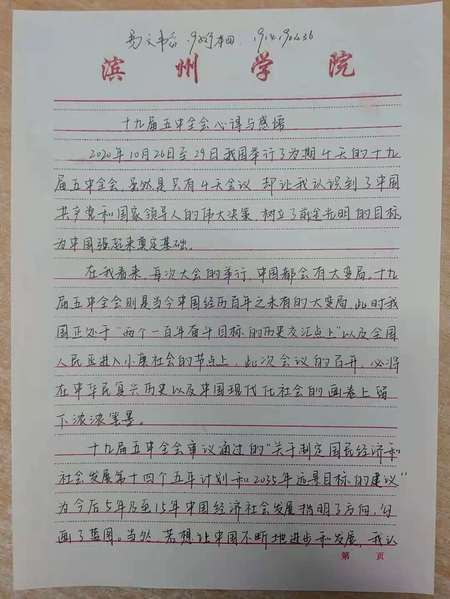 滨州学院
十九届五中全会心得与感悟
2020年10月26日至29日我国举行了为期4天的十九
届五中全会,虽然是只有4天会议 却让我认识到了中国
共产党和国家领导人的伟大决策 树立了前途光明的目标
为中国强起来奠定基础。
在我看来,每次大会的举行,中国都会有大变局。十九
届五中全会则是当今中国经历百年之未有的大变局,此时我
国正处于“两个一百年奋斗目标的历史交汇点上”以及全国
人民正进入小康社会的节点上,此次会议的召开,必将
在中华民复兴历史以及中国现代化社会的画卷上留
下浓浓墨墨。
十九届五中全会审议通过的“关于制定国民经济和
社会发展第十四个五年计划和2035年远景目标的建议”
为今后5年及至15年中国经济社会发展指明了方向,勾
画了蓝图。当然,若想让中国不断地进步和发展,我认
第 页